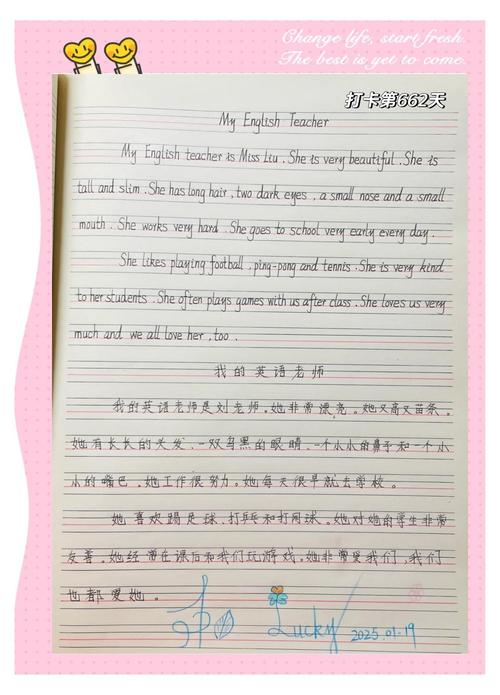 Change life, start fresh.
The best is yet to come.
打卡第662天
My English Teacher
My English teacher is Miss Liu. She is very beautiful. She is
tall and slim. She has long hair, two dark eyes, a small nose and a small
mouth. She works very hard. She goes to school very early every day.
She likes playing football, ping-pong and tennis. She is very kind
to her students. She often plays games with us after class. She loves us very
much and we all love her, too.
我的英语老师
我的英语老师是刘老师。她非常漂亮。她又高又苗条。
她有长长的头发,一双乌黑的眼睛,一个小小的鼻子和一个小
小的嘴巴。她工作很努力。她每天很早就去学校。
她喜欢踢足球、打乒乓和打网球。她对她的学生非常
友善。她经常在课后和我们玩游戏。她非常爱我们,我们
也都爱她。
Lucky 2025.01.19